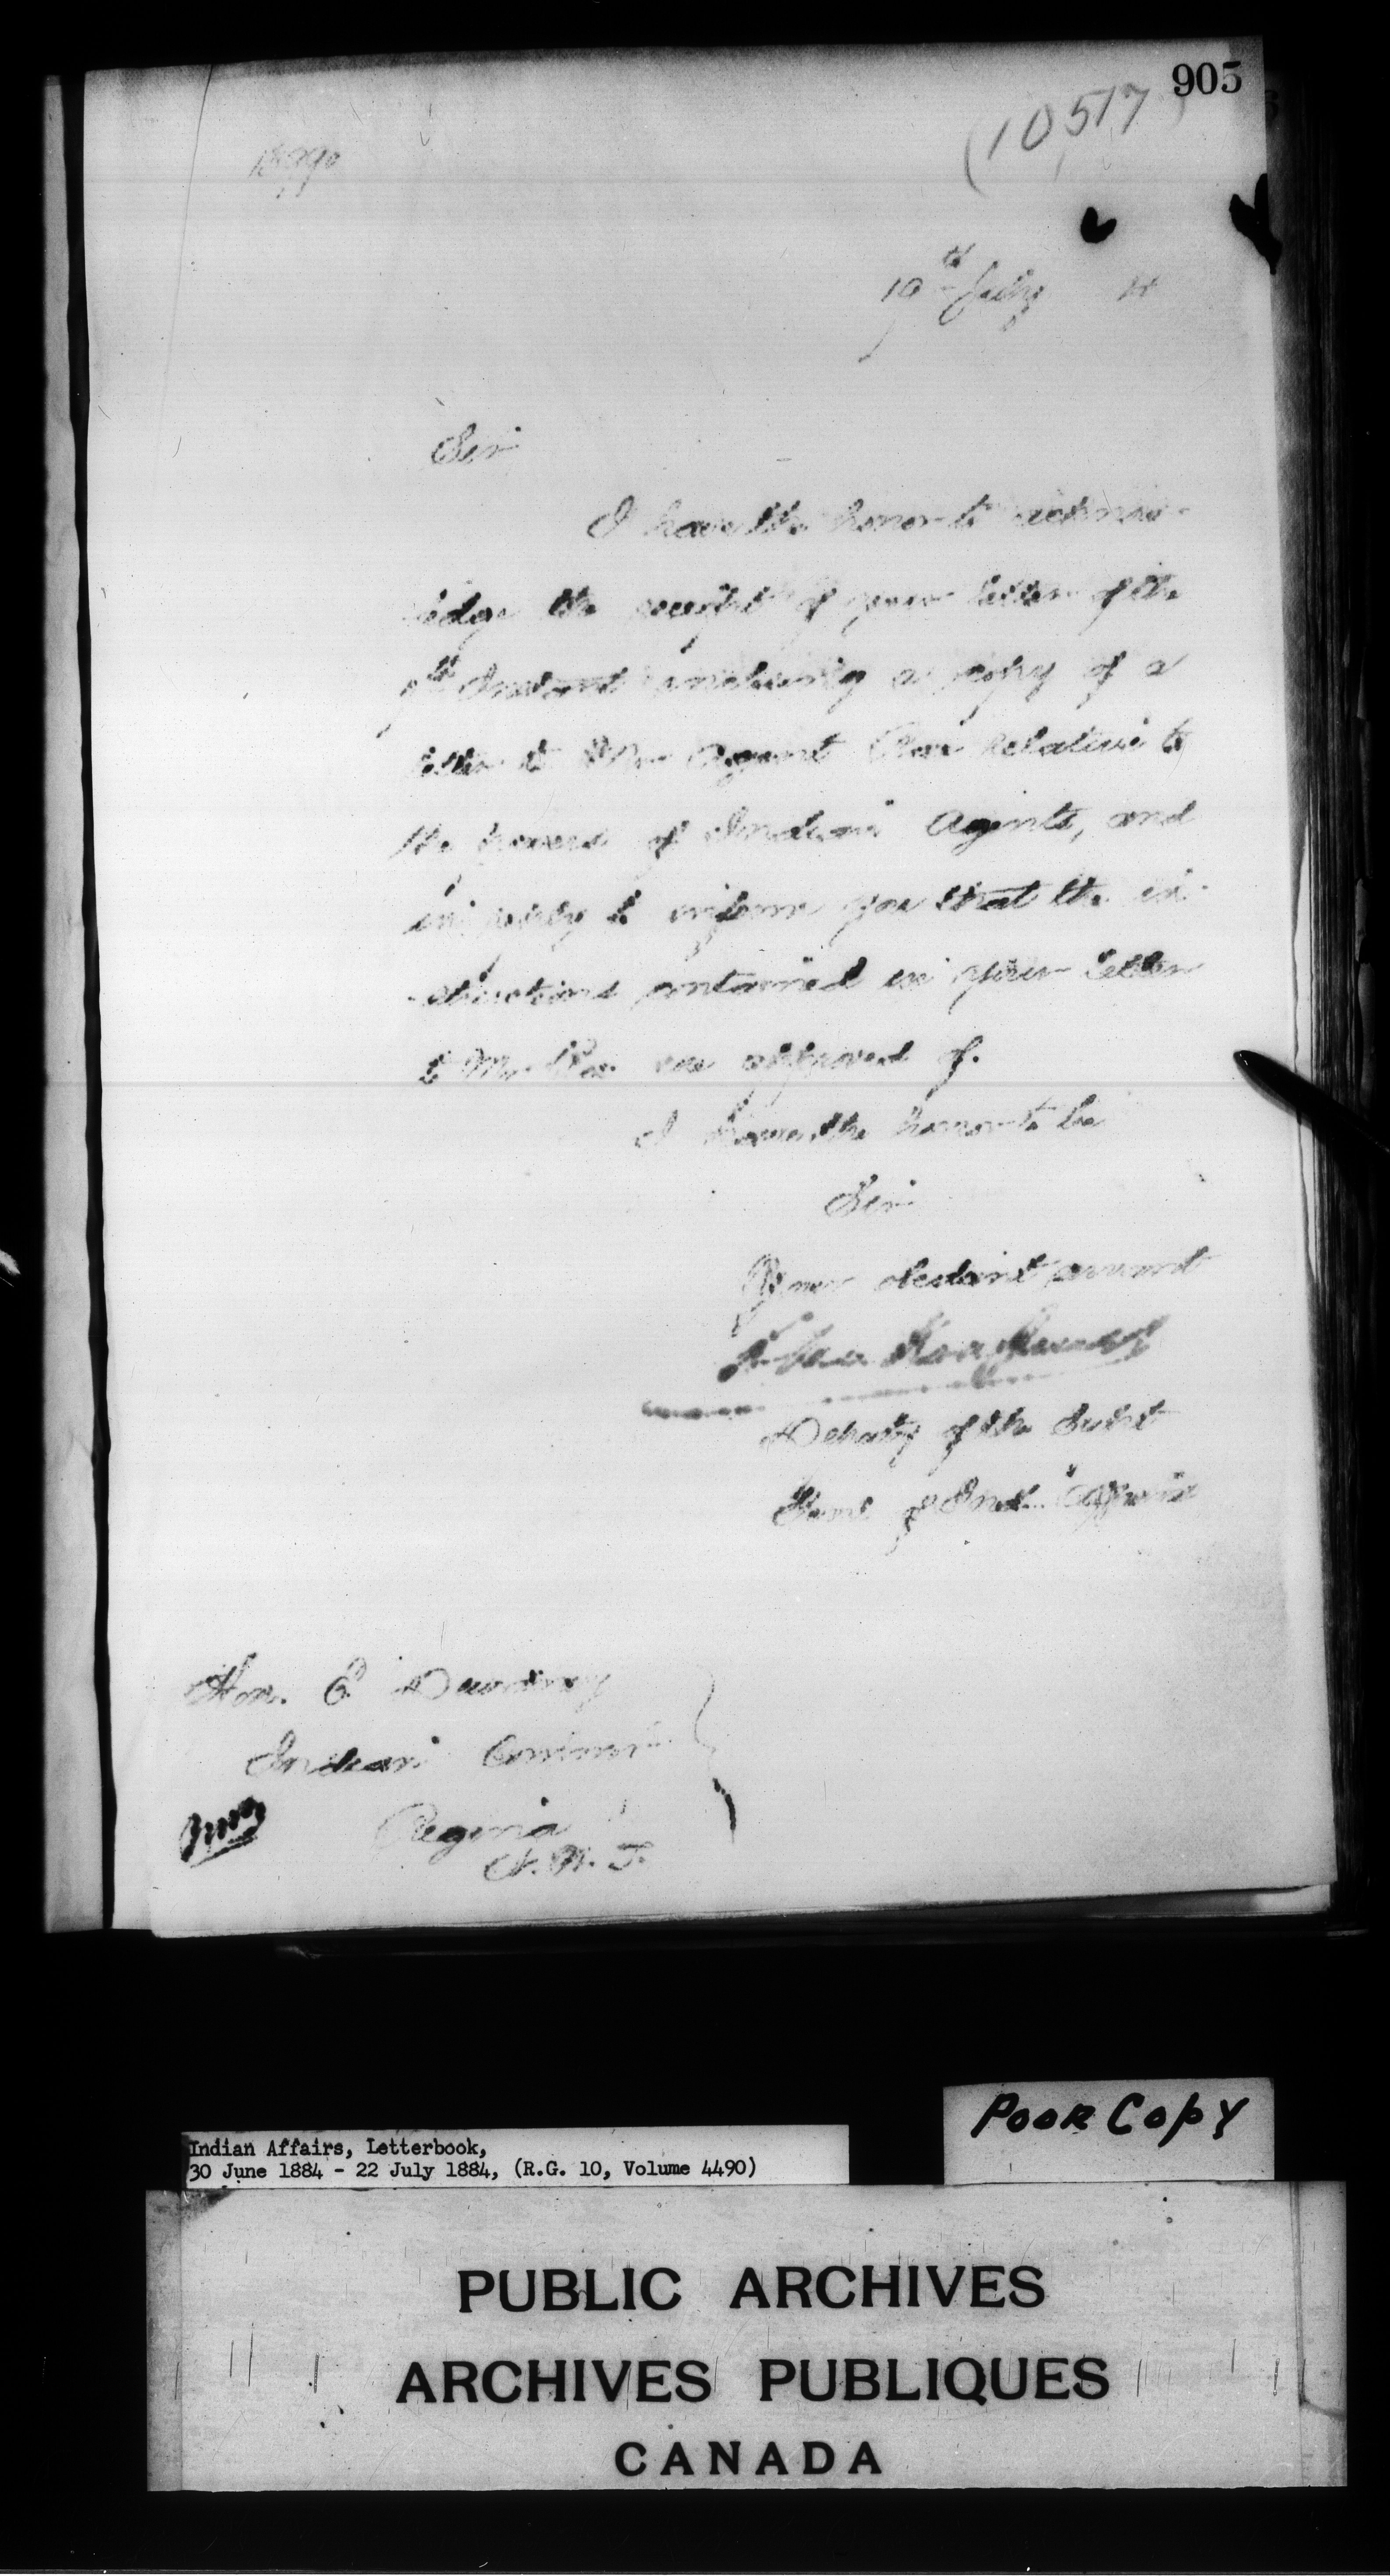 905
(10517)
19th July
Sir
I have the honor to acknow-
ledge the receipt of your letter of the
9th Instant enclosing a copy of a
letter to Mr Agent Rae relative to
the powers of Indian Agents, and
in reply to inform you that the in-
structions contained in your letter
to Mr Rae are approved of.
I have the honor to be
Sir
Your obedient servant
L. Van Koughnet
Deputy of the Supt
Genl of Ind. Affairs
Hon. E Dewdney
Indian Commr
Regina
N. W. T.
Poor Copy
Indian Affairs, Letterbook,
30 June 1884 - 22 July 1884, (R.G. 10, Volume 4490)
PUBLIC ARCHIVES
ARCHIVES PUBLIQUES
CANADA